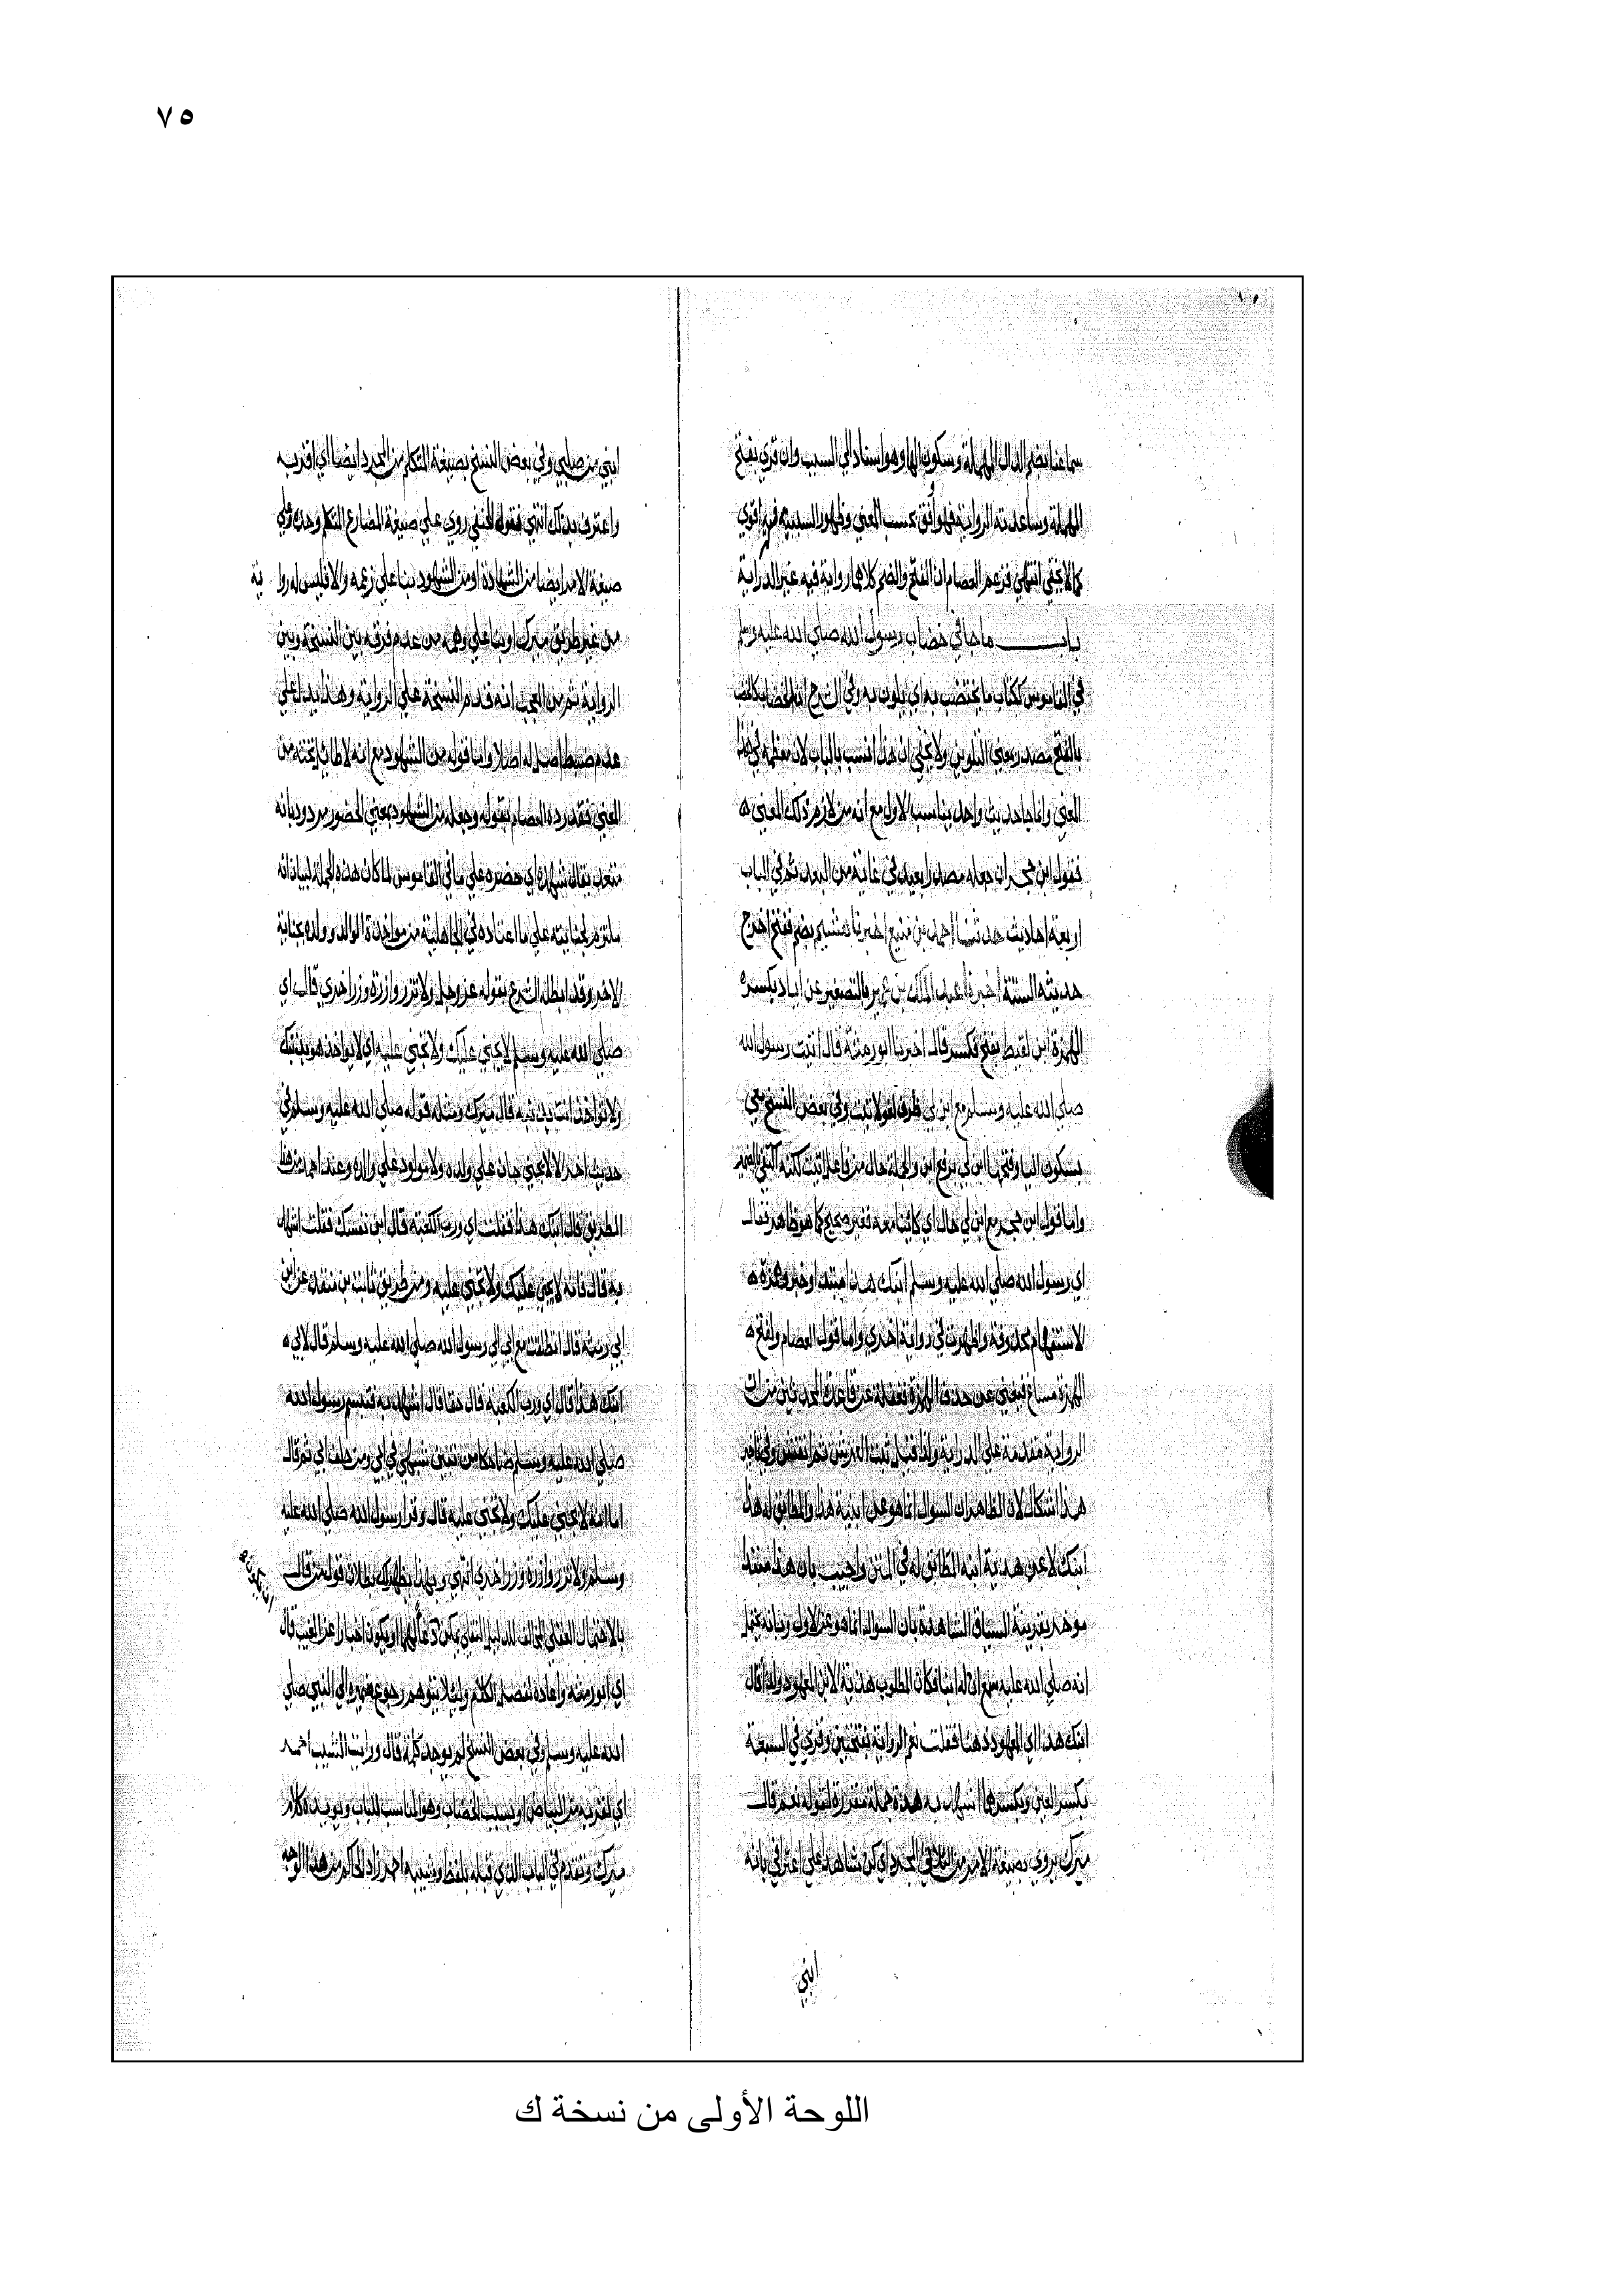 ٧٥
سماعنا بضم الدال المهملة وسكون الهاء وهو اسناد الي السبب وان قري بفتح
المهملة وساعدته الرواية فهو أوفق بحسب المعني وظهور السببية فيه اقوي
كما لا يخفي انتهي فزعم العصام ان الفتح والضم كلاهما رواية فيه عير الدراية
باب ما جا في خضاب رسول الله صلي الله عليه وسلم
في القاموس ككتاب ما يختضب به اي يلون به وفي الشرح
بالفتح مصدر بمعني التلوين ولا يخفي ان هذا انسب بالباب لان
المعني وانما جا حديث واحد يناسب الاول مع انه من لازم ذلك المعني ه
فقول ابن حجر ان جعله مصدرا بعيد في غاية من البعد ثم في الباب
اربعة احاديث حدثنا احمد بن منيع اخبرنا هشيم بضم ففتح اخرج
حديثه الستة اخبرنا عبد الملك بن عمير بالتصغير عن اياد بكسره
الهمزة ابن لقيط بفتح فكسر قال اخبرنا ابو رمثة قال اتيت رسول الله
صلي الله عليه وسلم مع ابن لي ظرف لقوله اتيت وفي بعض النسخ معي
بسكون اليا وفتحها ابن لي برفع ابن والجملة حال من فاعل اتيت
واما قول ابن حجر مع ابن لي حال اي كائنا معه فغير صحيح كما هو ظاهر فقال
اي رسول الله صلي الله عليه وسلم ابنك هذا مبتدا وخبر وهمزة ه
الاستفهام محذوفة واظهرت في رواية اخري واما قول العصام ولفتح ه
الهمزة مساغ فيغني عن حذف الهمزة فغفلة عن قاعدة المحدثين من ان
الرواية مقدمة علي الدراية ولذا قيل ثبت العرش ثم انقش وفي
هذا اشكال لان الظاهر ان السوال انما هو عن ابنية هذا والمطابق له هذا
ابنك لا عن هذية ابنه المطابق له في المتن واجيب بان هذا مبتدا
موخر بقرينة السياق الشاهدة بان السوال انما هو عن الاول وبانه يحتمل
انه صلي الله عليه سمع ان له ابنا فكان المطلوب هذية الابن المعهود ولذا قال
ابنك هذا اي المعهود ذهنا فقلت نعم الرواية بفتحتين وقري في السبعة
بكسر العين وبكسرهما اشهد به هذه جملة مقررة لقوله نعم قال
ميرك يروي بصيغة الامر من الثلاثي المجرد اي كن شاهدا علي اعترافي بانه
ابني
ابني من صلبي وفي بعض النسخ بصيغة المتكلم من المجرد ايضا اي اقر به
واعترف بذلك انتهي فقول الحنفي روي علي صيغة المضارع المتكلم وحده وعلي
صيغة الامر ايضا من الشهادة او من الشهود بنا علي زعمه والا فليس له رواية
من غير طريق ميرك او بنا علي وهمه من عدم فرقه بين النسخة وبين
الرواية ثم من العجب انه قدم النسخة علي الرواية وهذا يدل علي
عدم ضبط اصل له اصلا واما قوله من الشهود مع انه لا طائل تحته من
المعني فقد رده العصام بقوله وجعله من الشهود بمعني الحضور مردود بانه
متعد يقال شهده اي حضره علي ما في القاموس لما كان هذه الجملة لبيان انه
ملتزم لجنايته علي ما اعتاده في الجاهلية من مواخذة الوالد وولده بجناية
الاخر وقد ابطله الشرع بقوله عز وجل ولا تزر وازرة وزر اخري قال اي
صلي الله عليه وسلم لا يجني عليك ولا تجني عليه اي لا يواخذ هو بذنبك
ولا تواخذ انت بذنبه قال ميرك ومثله قوله صلي الله عليه وسلم في
حديث اخر الا لا يجني جان علي ولده ولا مولود علي والده وعند احمد من هذا
الطريق قال ابنك هذا فقلت اي ورب الكعبة قال ابن نفسك فقلت اشهد
به قال فانه لا يجني عليك ولا تجني عليه ومن طريق ثابت بن منقذ عن ابن
ابي رمثة قال انطلقت مع ابي الي رسول الله صلي الله عليه وسلم قال لابي ه
ابنك هذا قال اي ورب الكعبة قال حقا قال اشهد به فتبسم رسول الله
صلي الله عليه وسلم ضاحكا من تبين شبهي في ابي ومن حلف ابي ثم قال
اما انه لا يجني عليك ولا تجني عليه قال وقرا رسول الله صلي الله عليه
وسلم ولا تزر وازرة وزر اخري انتهي وبهذا يظهر لك بطلان قوله من قال
بالاحتمال العقلي المخالف للدليل النقلي ويكون اخبارا عن الغيب قال
اي ابو رمثة واعاده لفصل الكلام ولئلا يتوهم رجوع ضميره الي النبي صلي
الله عليه وسلم وفي بعض النسخ لم يوجد كلمة قال ورايت الشيب احمر
اي لقربه من البياض او بسبب الخضاب وهو المناسب للباب ويويده كلام
ميرك وتقدم في الباب الذي قبله بلفظ وشيبه احمر زاد الحاكم من هذا الوجه
اللوحة الأولى من نسخة ك